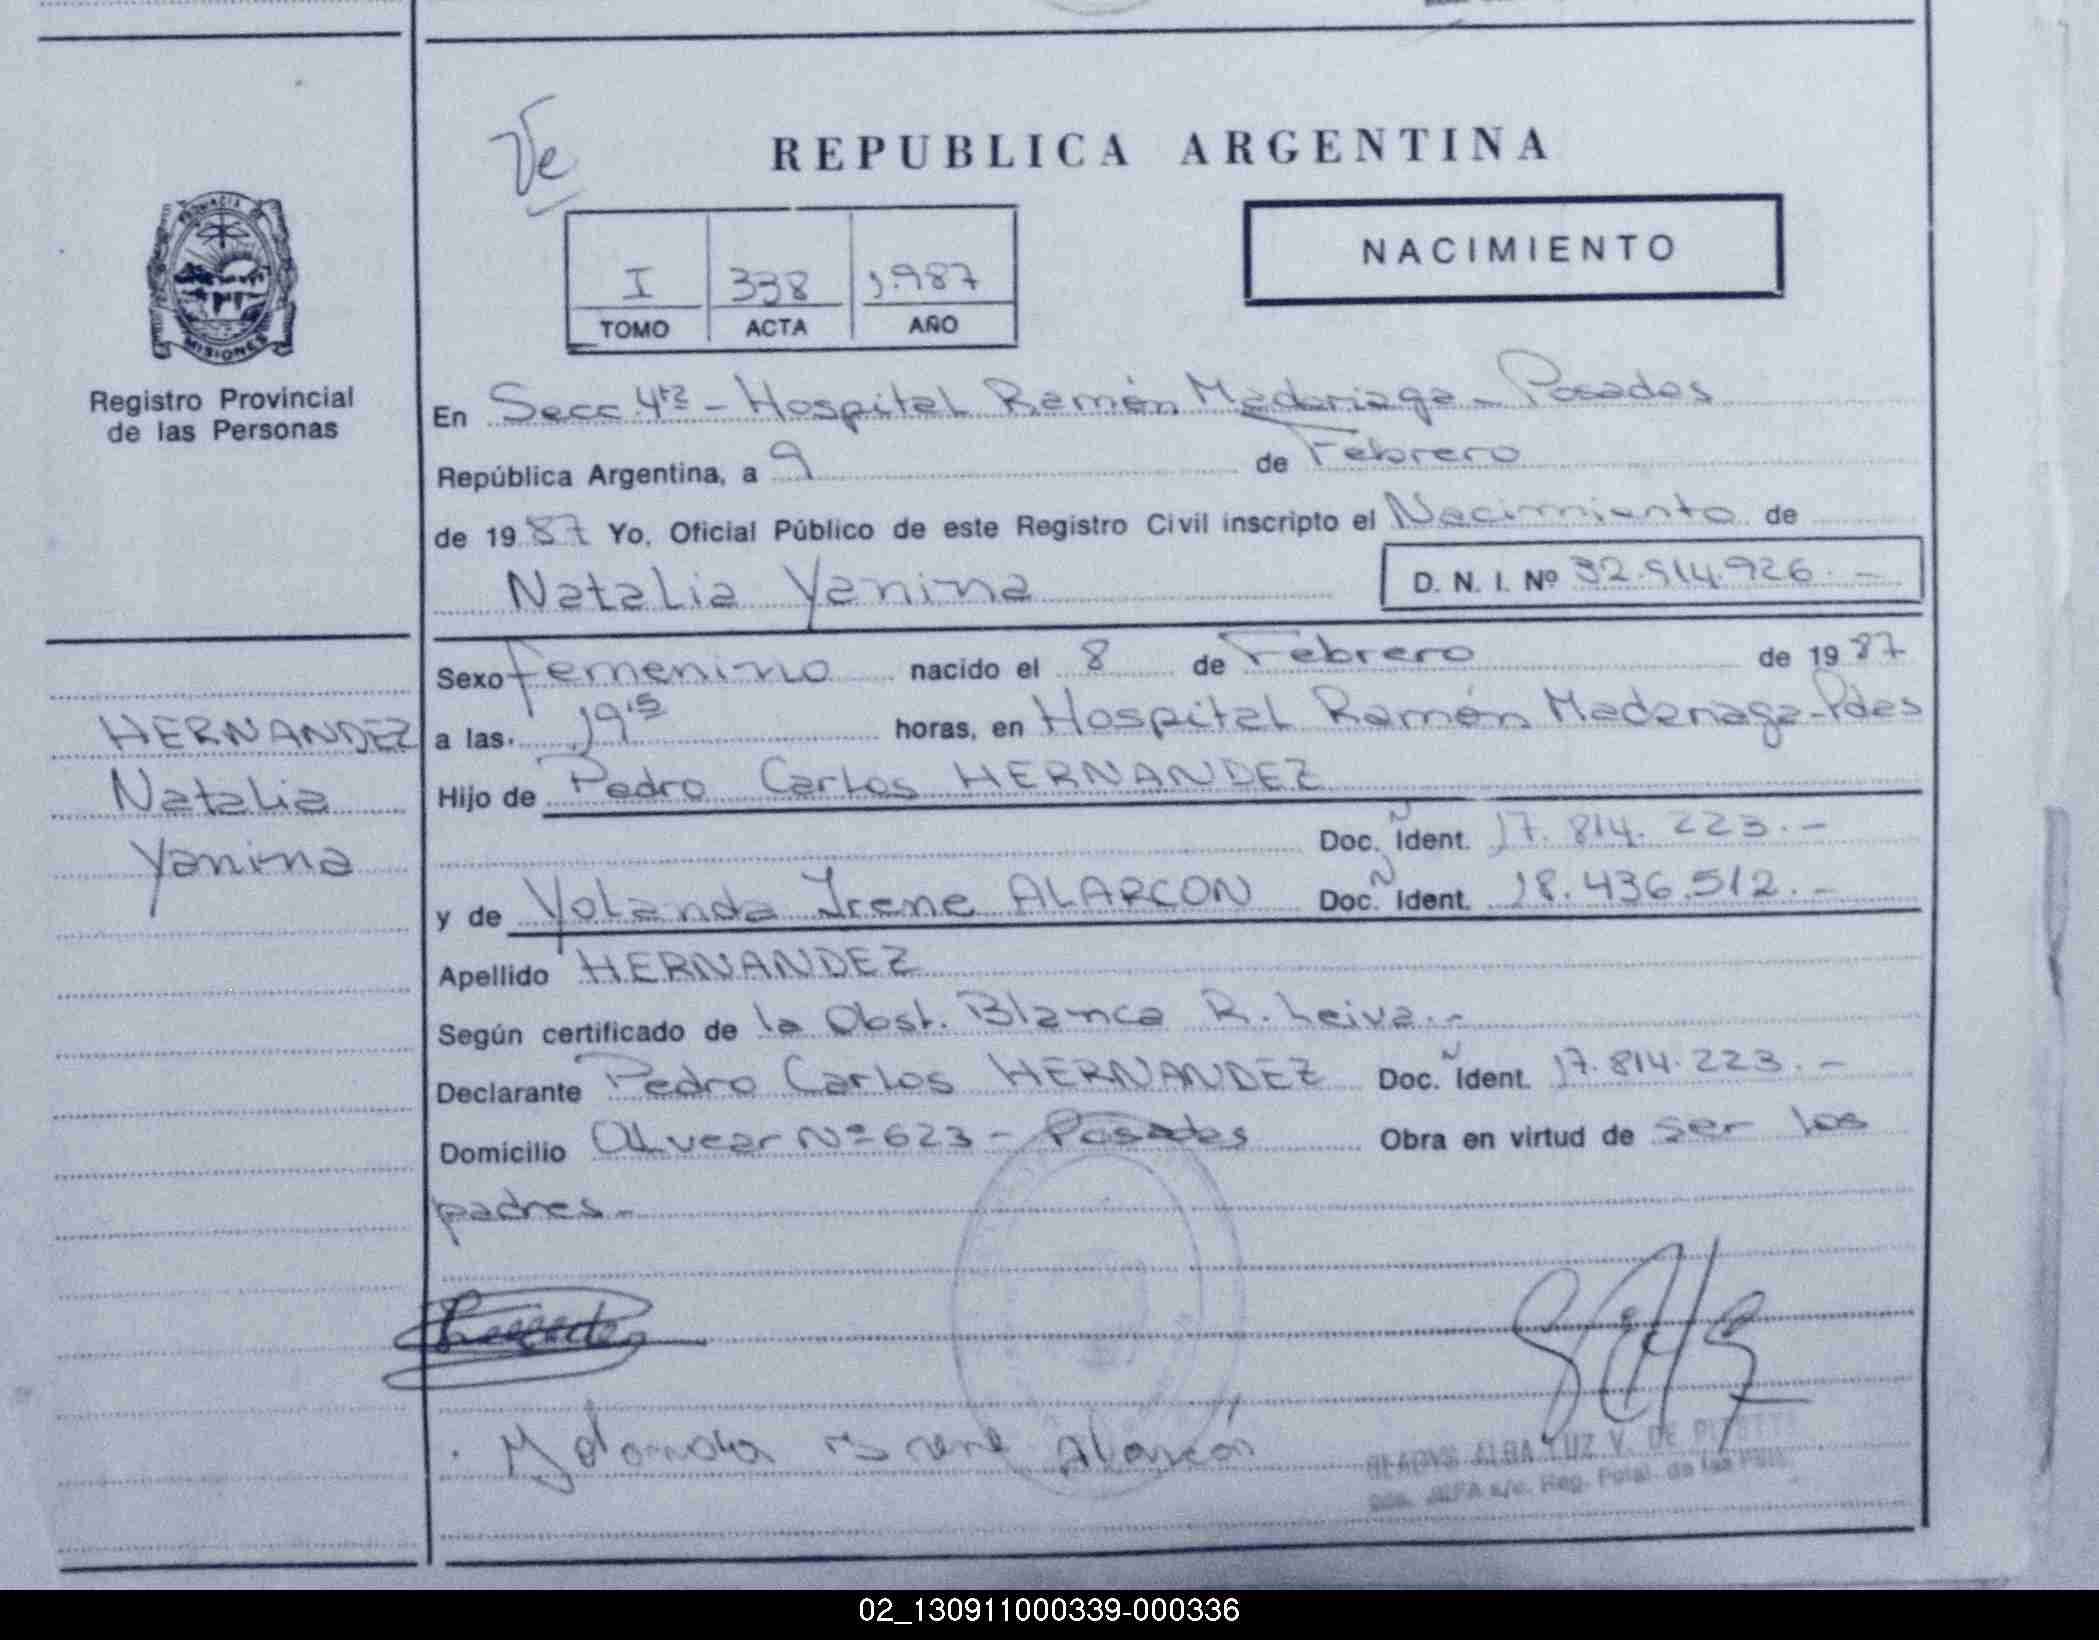 Ve
REPUBLICA ARGENTINA
I 338 1.987
TOMO ACTA AÑO
NACIMIENTO
PROVINCIA DE
MISIONES
Registro Provincial
de las Personas
HERNANDEZ
Natalia
Yanina
En Secc. 4ta - Hospital Ramón Madariaga - Posadas
República Argentina, a 9 de Febrero
de 1987 Yo, Oficial Público de este Registro Civil inscripto el Nacimiento de
Natalia Yanina D. N. I. Nº 32.914.926.-
Sexo Femenino nacido el 8 de Febrero de 1987
a las 19 15 horas, en Hospital Ramón Madariaga-Pdas
Hijo de Pedro Carlos HERNANDEZ
Doc. Ident. 17.814.223.-
y de Yolanda Irene ALARCON Doc. Ident. 18.436.512.-
Apellido HERNANDEZ
Según certificado de la Obst. Blanca R. Leiva.-
Declarante Pedro Carlos HERNANDEZ Doc. Ident. 17.814.223.-
Domicilio Alvear Nº 623 - Posadas Obra en virtud de ser los
padres.-
Yolanda Irene Alarcón
GLADYS ALBA LUZ V. DE
a/c. Reg. Pcial. de las
02_130911000339-000336